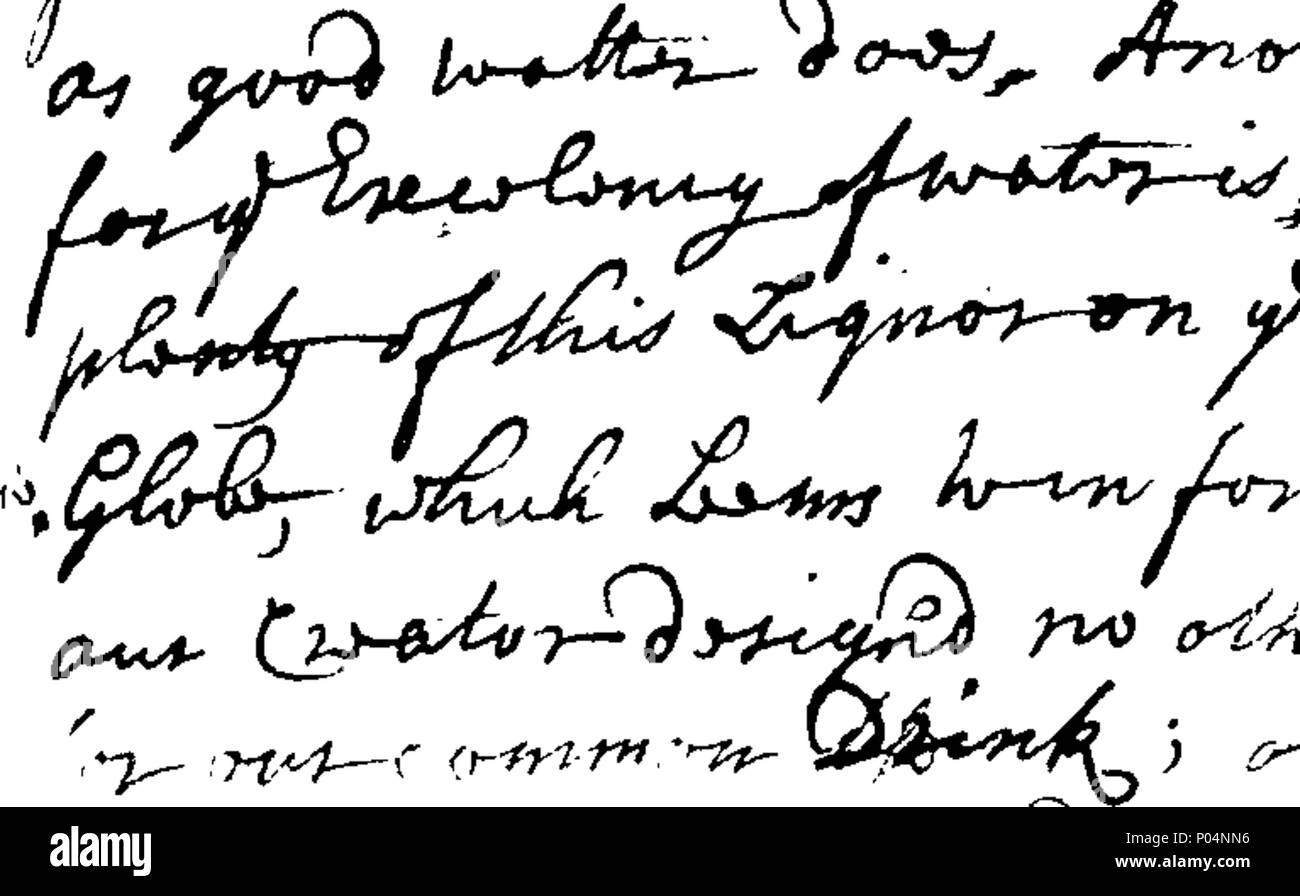 as good watter does. Ano
for ye Execelency of water is,
plenty of this Liquor on ye
Globe, which Seems
our Creator designd no oth
or our common Drink;
alamy
Image ID: P04NN6
www.alamy.com